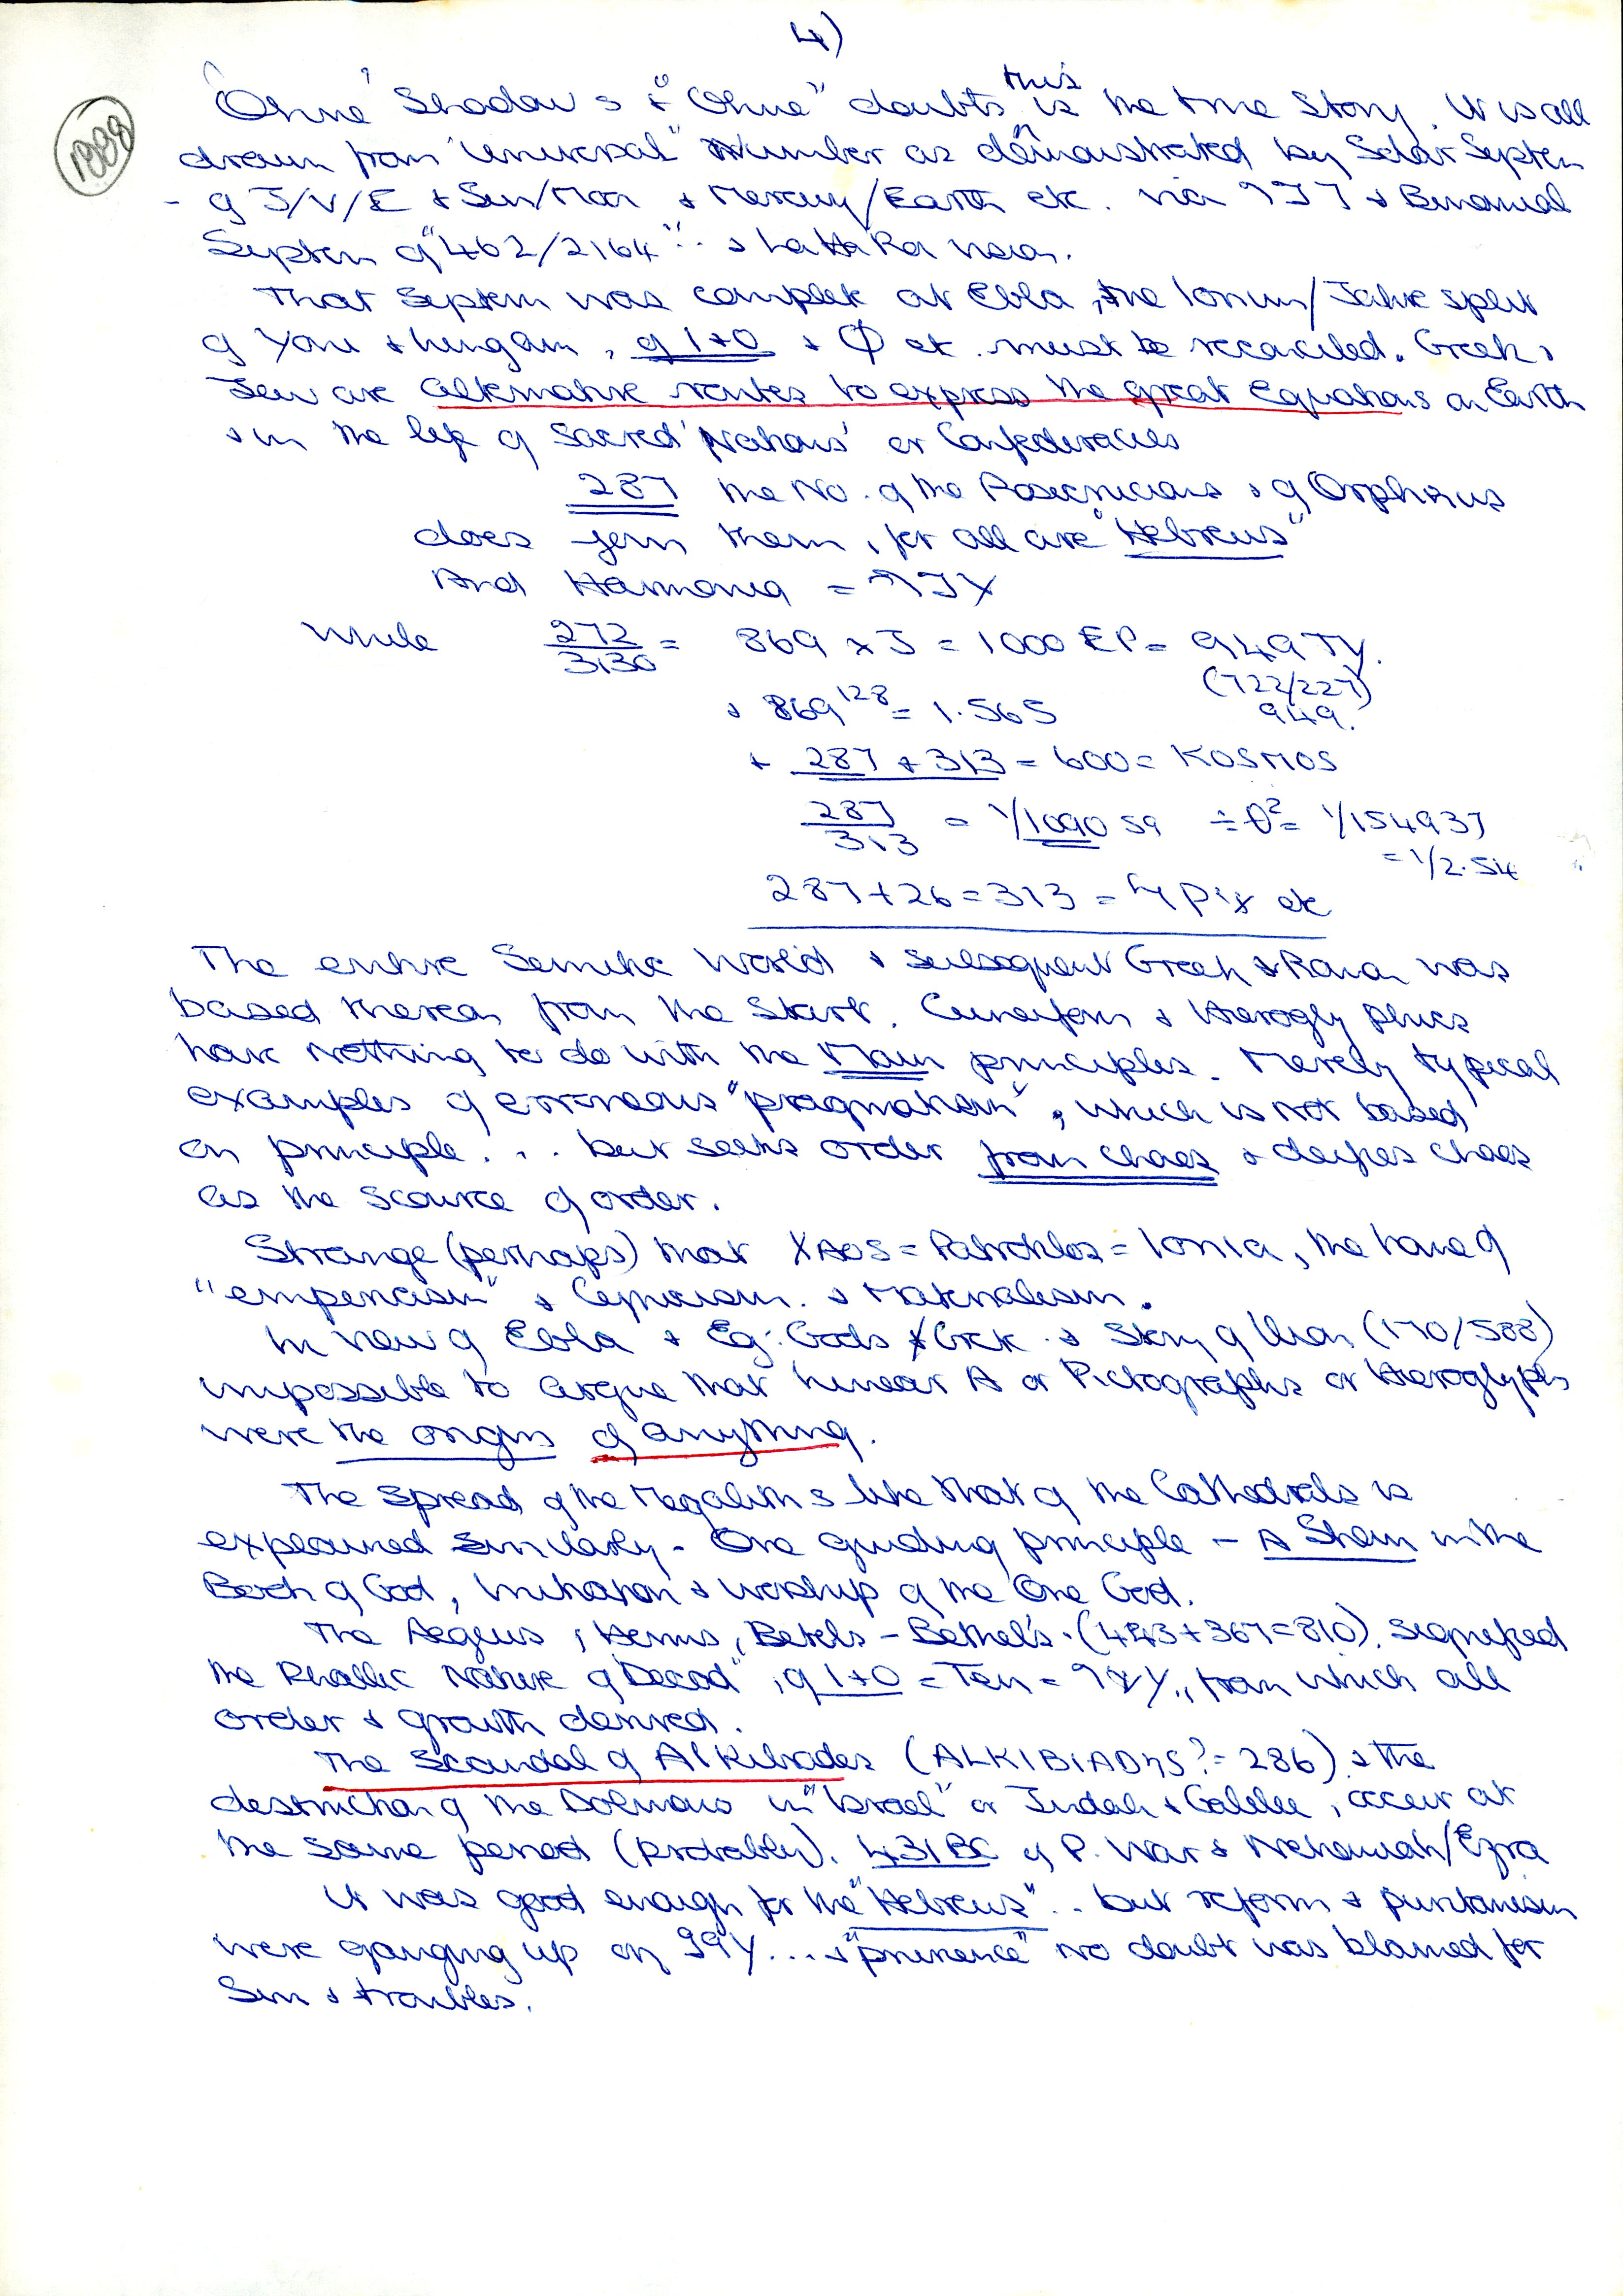 4)
1888
'Ohne' Shadows & "Ohne" doubts this is the true Story. It is all
drawn from "Universal" Number as demonstrated by Solar System
- of J/V/E & Sun/Moon & Mercury/Earth etc. via 977 & Binomial
System of "462/2164"..
That System was complete at Ebla, the Ionian/Jahve split
of Yoni & Lingam, of 1+0 & Φ etc. must be reconciled. Greek &
Jew are alternative routes to express the great Equations on Earth
& in the life of Sacred 'Nations' or Confederacies
287 the No. of the Rosecrucians & of Orpheus
does join them, for all are "Hebrews"
And Harmonia =
While 272/3130 = 869 x J = 1000 EP = 949 TY.
(722/227)
& 869^128 = 1.565 949.
+ 287 + 313 = 600 = KOSMOS
287/313 = 1/109059 ÷ θ² = 1/154937
= 1/2.54
287+26=313 = etc
The entire Semitic World & subsequent Greek & Roman was
based thereon from the Start. Cuneiform & Hieroglyphics
have nothing to do with the Main principles. Merely typical
examples of erroneous "pragmatism", which is not based
on principle... but seeks order from chaos & deifies chaos
as the scource of order.
Strange (perhaps) that XAOS = Patroklos = Ionia, the home of
"empericism" & Cynicism. & Materialism.
In view of Ebla & Eg: Gods & Grk. & Story of (170/588)
impossible to argue that Linear A or Pictographs or Hieroglyphs
were the origins of anything.
The spread of the Megaliths like that of the Cathedrals is
explained similarly - One guiding principle - A Shem in the
of God, Initiation & worship of the One God.
The Aegeus, Herms, Betels - Bethel's. (443+367=810). Signified
the Phallic Nature of Decad", of 1+0 = Ten = , from which all
order & growth derived.
The Scandal of Alkibiades (ALKIBIADHS? = 286) & the
destruction of the Dolmens in "Israel" or Judah & Galilee, occur at
the same period (probably). 431 BC of P. War & Nehemiah/Ezra
It was good enough for the "Hebrews".. but reform & puritanism
were ganging up on ... & no doubt was blamed for
Sin & troubles.